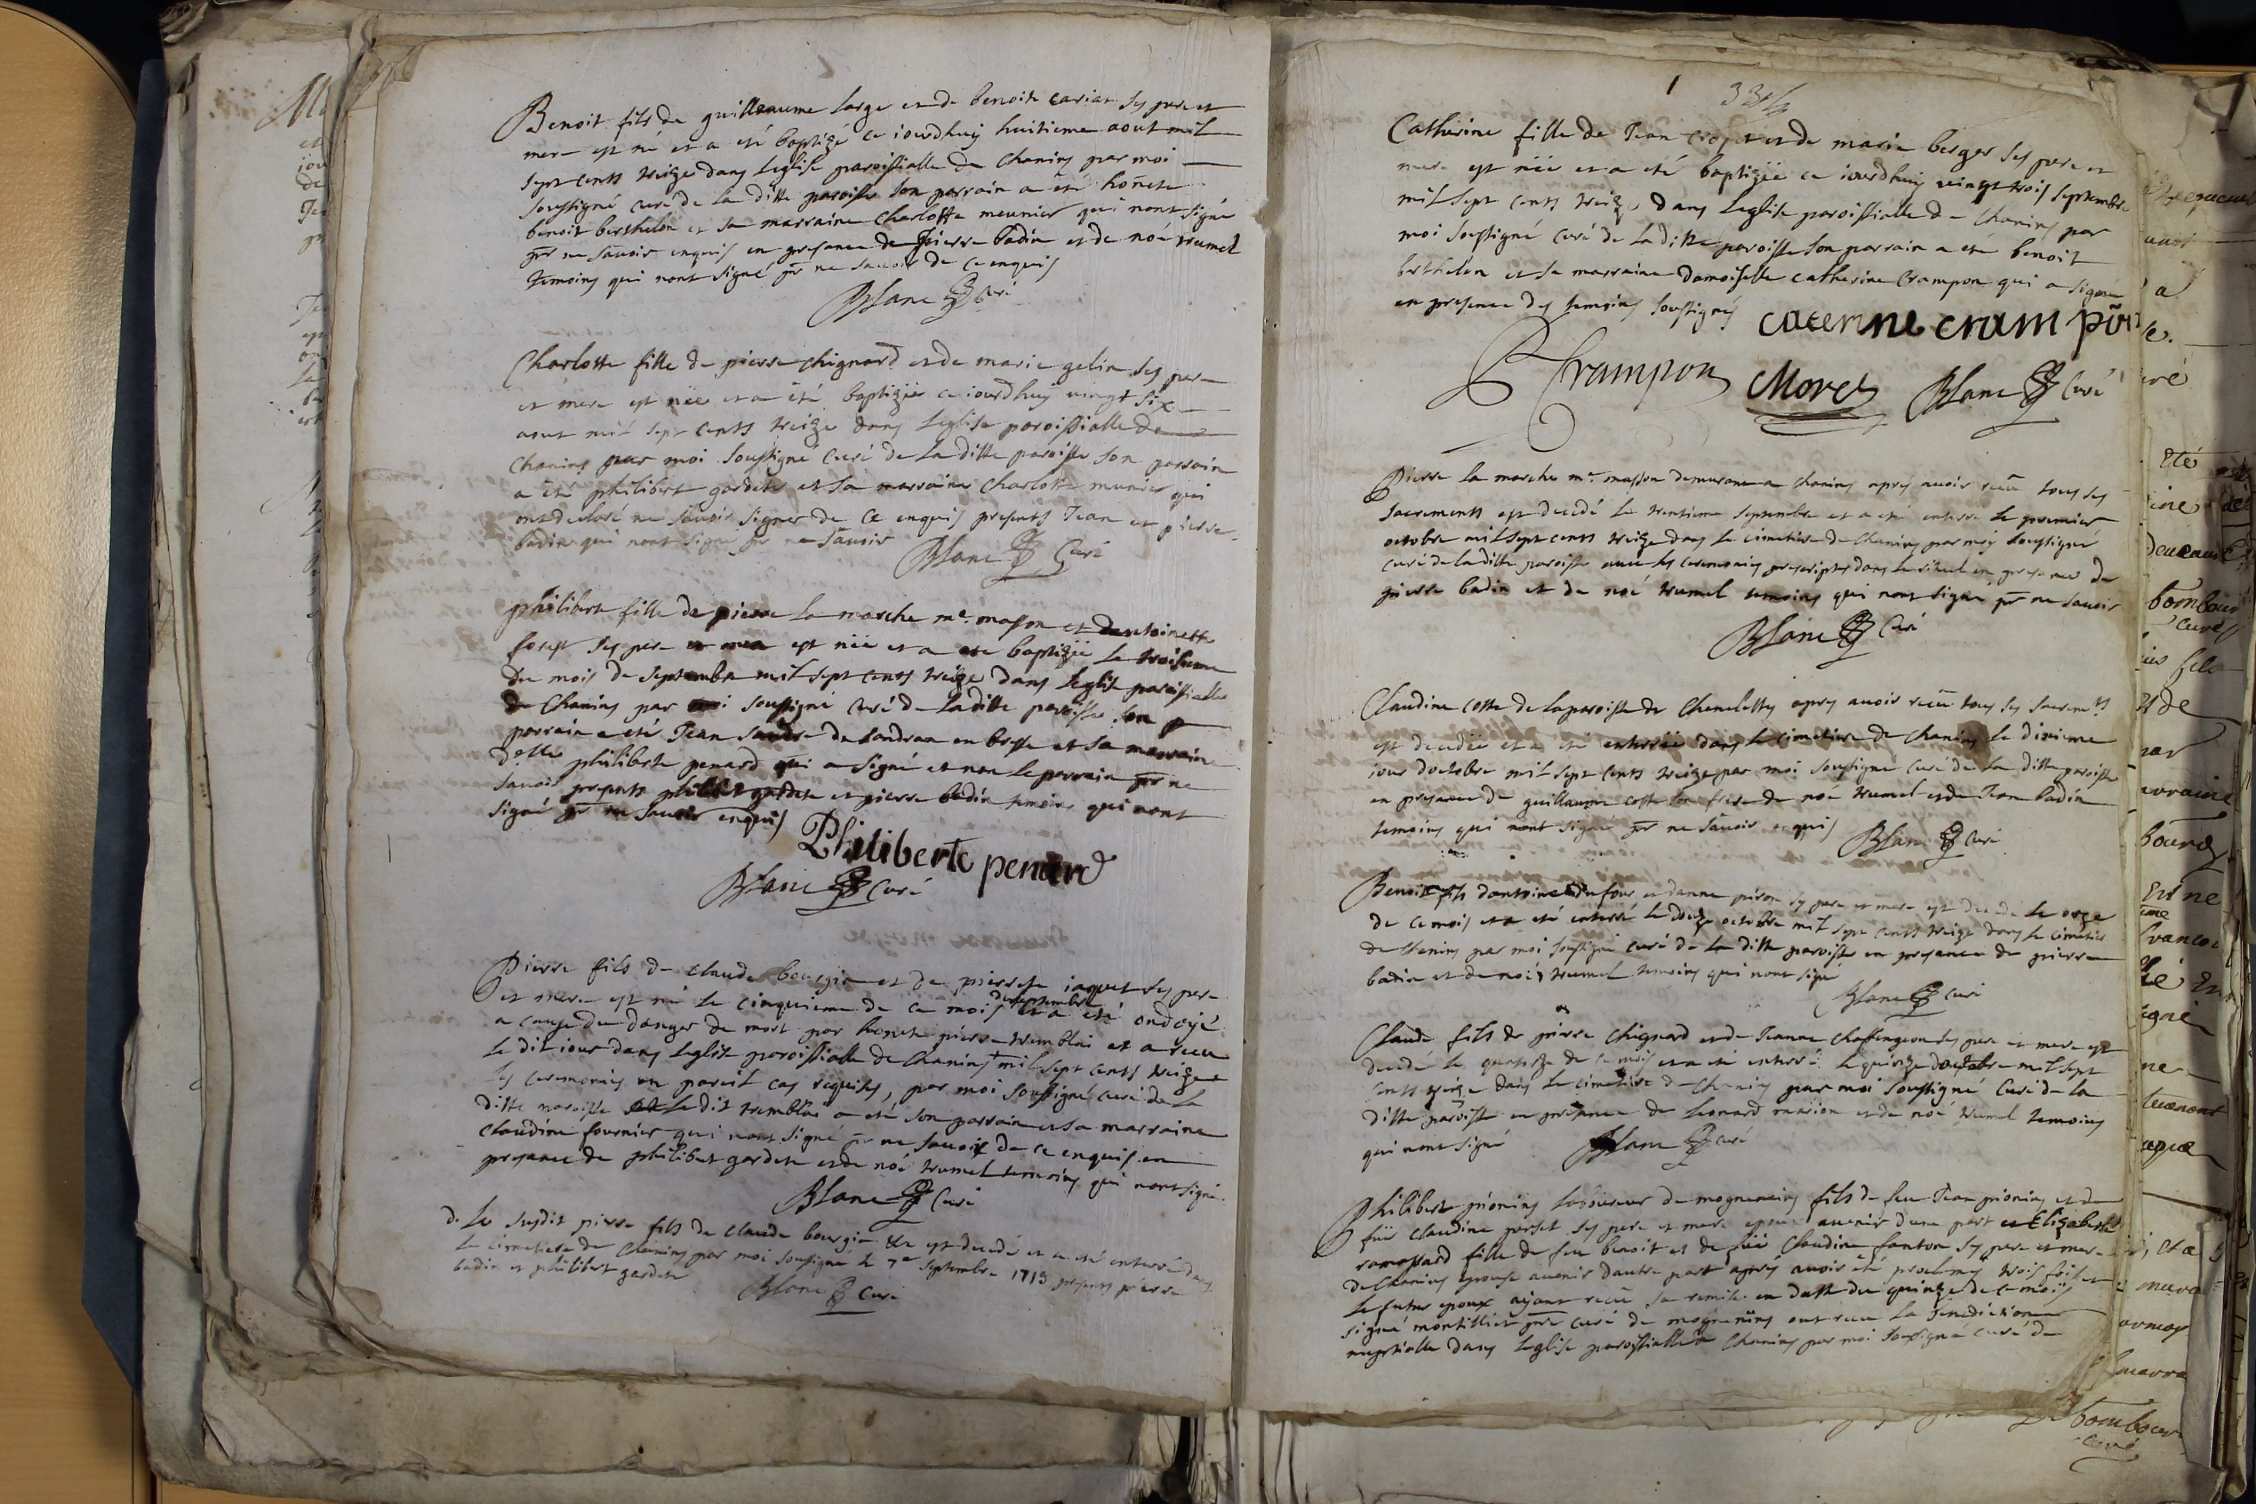 Benoit fils de guilleaume large et de benoite cariat ses pere et
mere est né et a eté baptizé ce iourdhuy huitieme aout mil
sept cents treize dans leglise paroissialle de Chanins par moi
soussigné curé de la ditte paroisse son parrain a été honete
benoit berthelon et sa marraine Charlotte meunier qui nont signé
pr ne sauoir enquis en presance de pierre badin et de noé trumel
temoins qui nont signé pr ne sauoir de ce enquis
Blanc Curé
Charlotte fille de pierre chignard et de marie gelin ses pere
et mere est née et a été baptizée ce iourdhuy uingt six
aout mil sept cents treize dans leglise paroissialle de
Chanins par moi soussigné curé de la ditte paroisse son parrain
a été philibert gardete et sa marraine Charlotte munier qui
ont declaré ne sauoir signer de ce enquis presents Jean et pierre
badin qui nont signé pr ne sauoir
Blanc Curé
philiberte fille de pierre la marche me. masson et dantoinette
ses pere et mere est née et a eté baptizée le troisieme
du mois de septembre mil sept cents treize dans leglise paroissialle
de Chanins par moi soussigné curé de laditte paroisse son
parrain a eté Jean de Landran en bresse et sa marraine
delle philiberte penard qui a signé et non le parrain pr ne
sauoir presents philibert gardete et pierre badin temoins qui nont
signé pr ne sauoir enquis
Philiberte penard
Blanc Curé
Pierre fils de claude bourgie et de pierrete iaquet ses pere
et mere est né le cinquieme de ce mois de septembre et a eté ondoyé
a cause du danger de mort par honete pierre tremblai et a receu
le dit iour dans leglise paroissialle de Chanins mil sept cents treize
les ceremonies en pareil cas requises, par moi soussigné curé de la
ditte paroisse le dit tremblai a eté son parrain et sa marraine
claudine fournier qui nont signé pr ne sauoir de ce enquis en
presance de philibert gardete et de noé trumel temoins qui nont signé
Blanc Curé
d. Le susdit pierre fils de claude bourgie est decedé et a eté enterré dans
le cimetiere de Chanins par moi soussigné le 7e septembre 1713 presents pierre
badin et philibert gardete
Blanc Curé
Catherine fille de Jean et de marie berger ses pere et
mere est née et a eté baptizée ce iourdhuy uingt trois septembre
mil sept cents treize dans leglise paroissialle de Chanins par
moi soussigné curé de la ditte paroisse son parrain a eté benoit
berthelon et sa marraine damoiselle catherine Crampon qui a signé
en presence des temoins soussignés
caterine crampon
Crampon Morel Blanc Curé
Pierre la marche me. masson demurant a Chanins apres auoir receu tous ses
sacrements est decedé le trentieme septembre et a eté enterré le premier
octobre mil sept cents treize dans le cimetiere de Chanins par moy soussigné
curé de la ditte paroisse auec les ceremonies prescriptes dans le rituel en presence de
pierre badin et de noé trumel temoins qui nont signé pr ne sauoir
Blanc Curé
Claudine coste de la paroisse de Cheneletty apres auoir receu tous ses sacrements
est decedée et a eté enterrée dans le cimetiere de Chanins le dixieme
iour doctobre mil sept cents treize par moi soussigné curé de la ditte paroisse
en presance de guillaume coste son frere de noé trumel et de Jean badin
temoins qui nont signé pr ne sauoir enquis
Blanc Curé
Benoit fils dantoine dufour et danne ses pere et mere est decedé le onze
de ce mois et a eté enterré le douze octobre mil sept cents treize dans le cimetiere
de Chanins par moi soussigné curé de la ditte paroisse en presance de pierre
badin et de noé trumel temoins qui nont signé
Blanc Curé
Claude fils de pierre Chignard et de Jeanne Chassengeon ses pere et mere est
decedé le quatorze de ce mois et a eté enterré le quinze doctobre mil sept
cents treize dans le cimetiere de Chanins par moi soussigné Curé de la
ditte paroisse en presance de Leonard marion et de noé trumel temoins
qui nont signé
Blanc curé
Philibert pionins laboureur de mogneneins fils de feu Jean pionins et de
füe claudine perset ses pere et mere epoux auenir dune part et Elizabeth
fille de feu benoit et de füe Claudine fanton ses pere et mere
de Chanins epouse auenir dautre part apres auoir eté proclamés trois fois et
le futur epoux ayant receu sa remise en datte du quinze de ce mois
signé montillier curé de mogneneins ont receu la benediction
nuptialle dans leglise paroissialle de Chanins par moi soussigné curé de